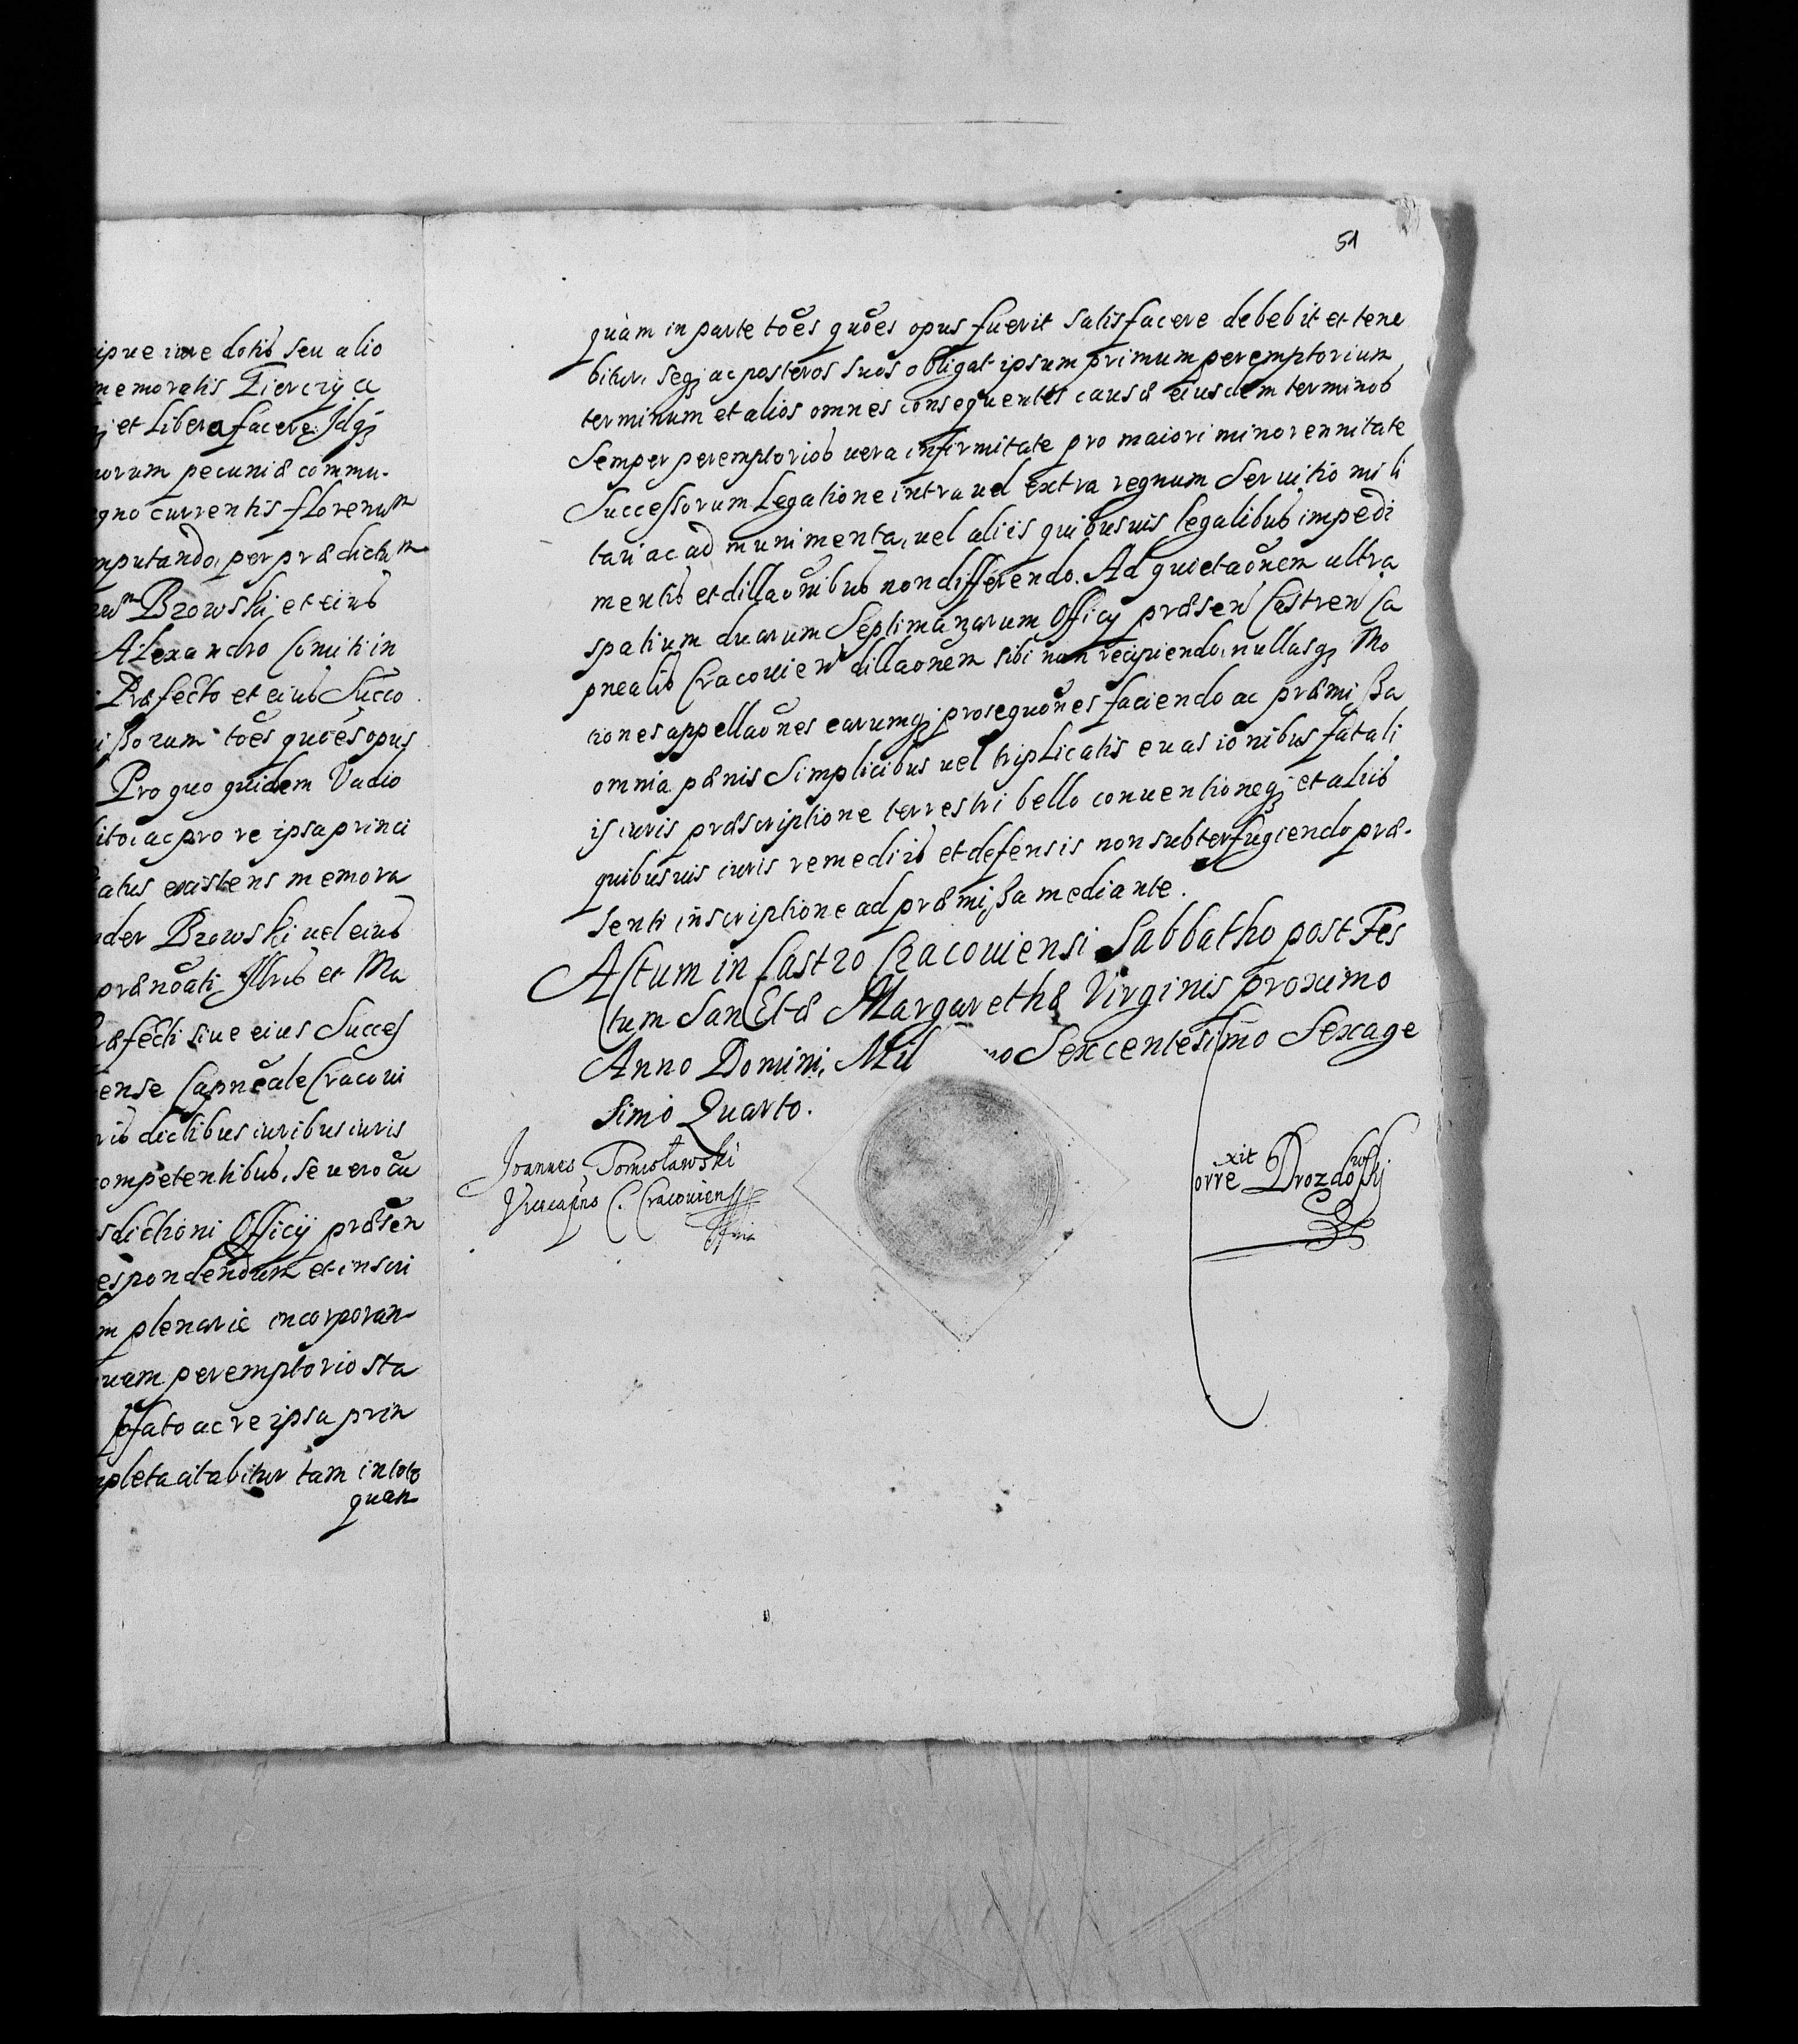 ipue iure dotis seu alio
memoratis Tierczy a
et libera facere. Idq;
norum pecuniæ commu-
gno currentis florenum
mputando, per prædictum
Brzowski et eius
Alexandro Comiti in
Præfecto et eius Succo
ißorum toes quoes opus
Pro quo quidem Vadio
ito, ac pro re ipsa princi
atus existens memora
der Brzowski uel eius
prænoati Illris et Ma
æfecti siue eius Succes
ense Capneale Cracoui
dictibus iuribus iuris
competentibus, se uero cu
sdictioni Officij præsen
espondendum et inscri
m plenarie incorporan
uam peremptorio sta
fato ac re ipsa prin
mpleta citabitur tam in toto
quam
51
quàm in parte toes quoes opus fuerit satisfacere debebit et tene
bitur, seq; ac posteros suos obligat ipsum primum peremptorium
terminum et alios omnes consequentes causæ eiusdem terminos
Semper peremptorios uera infirmitate pro maiori minorennitate
Successorum Legatione intra uel extra regnum Seruitio mili
tari ac ad munimenta, uel aliis quibusuis legalibus impedi
mentis et dillaonibus non differendo. Ad quietaonem ultra
spatium duarum Septimanarum Officij præsen Castren Ca
pnealis Cracouien dillaonem sibi non recipiendo, nullasq; Mo
tiones appellaones earumq; prosequones faciendo ac præmißa
omnia pænis Simplicibus uel triplicatis euasionibus fatali
is iuris præscriptione terrestri bello conuentioneq; et aliis
quibusuis iuris remediis et defensis non subterfugiendo præ-
senti inscriptione ad præmißa mediante.
Actum in Castro Cracouiensi Sabbatho post Fes
tum Sanctæ Margarethæ Virginis proximo
Anno Domini, Mil mo Sexcentesimo Sexage
simo Quarto.
Joannes Tomisławski
Vicecapneus C. Cracoviens
xit
orre Drozdowskij